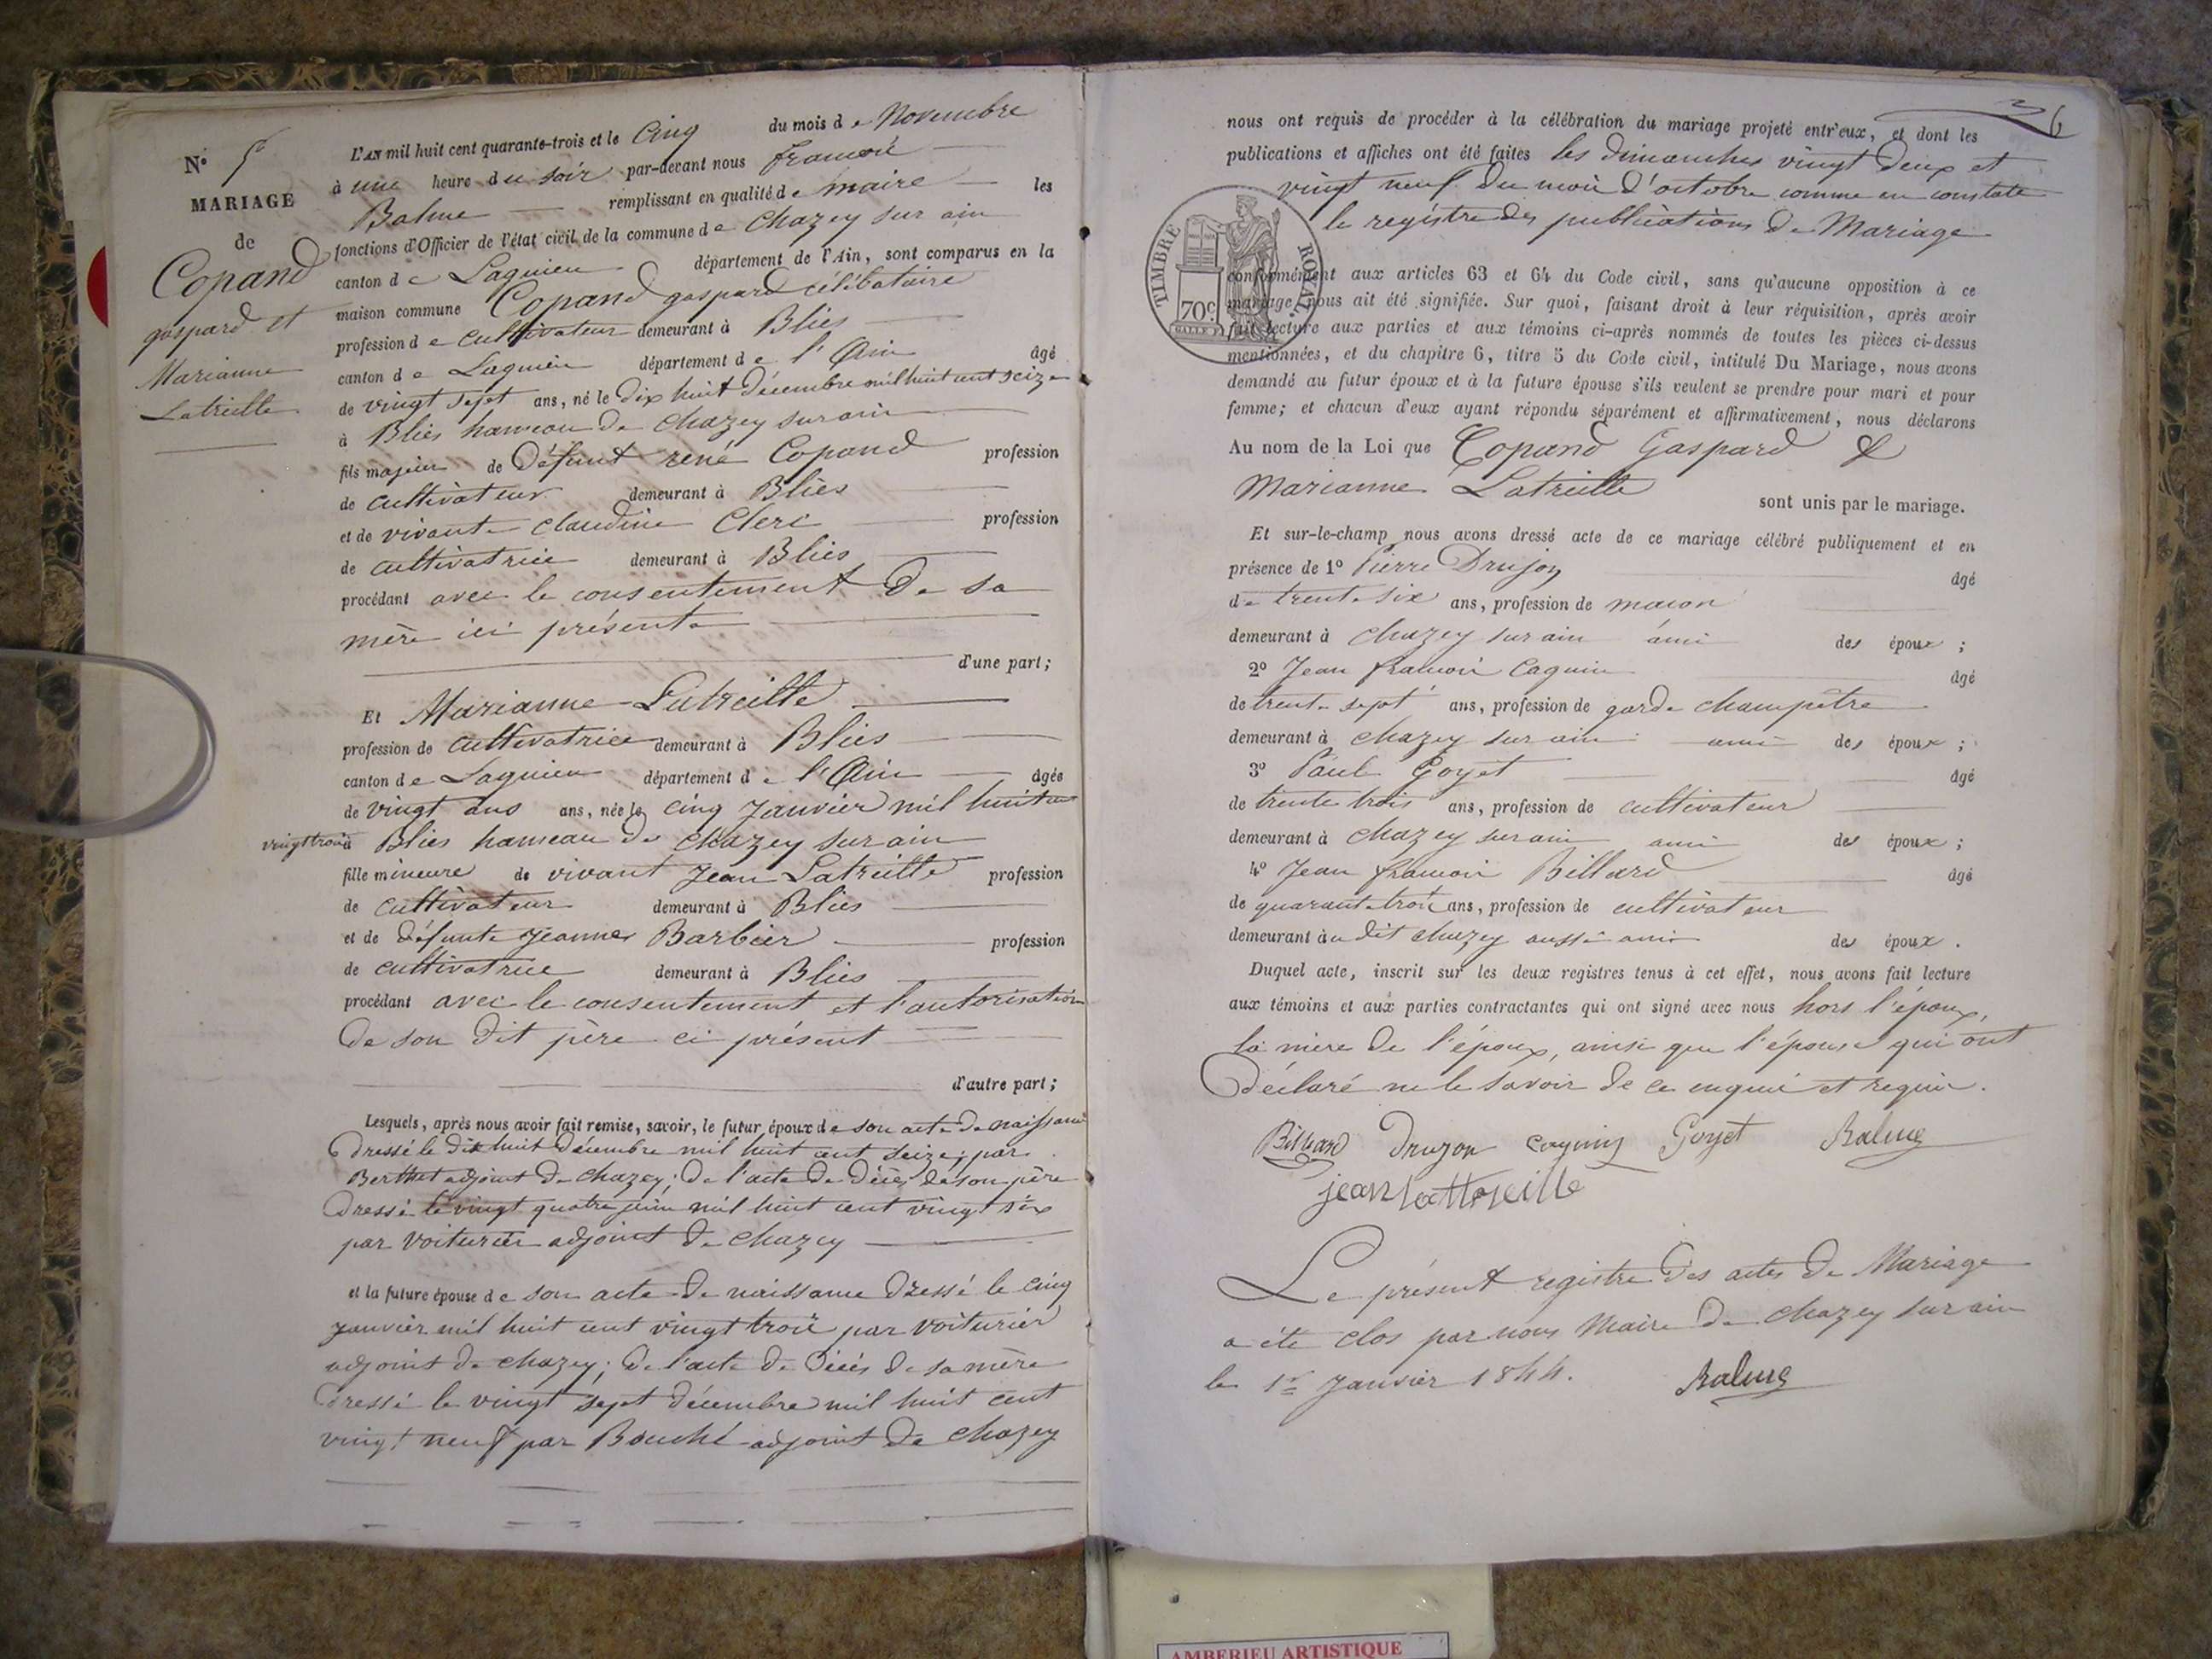 N° 5
MARIAGE
de
Copand
gaspard et
Marianne
Latreille
L'AN mil huit cent quarante-trois et le Cinq du mois de Novembre
à une heure du soir par-devant nous françois
Balme remplissant en qualité de maire les
fonctions d'Officier de l'état civil de la commune de Chazey sur ain
canton de Lagnieu département de l'Ain, sont comparus en la
maison commune Copand gaspard célibataire
profession de cultivateur demeurant à Blies
canton de Lagnieu département de l'Ain âgé
de vingt sept ans, né le dix huit décembre mil huit cent seize
à Blies hameau de Chazey sur ain
fils majeur de défunt rené Copand profession
de cultivateur demeurant à Blies
et de vivante claudine Clerc profession
de cultivatrice demeurant à Blies
procédant avec le consentement de sa
mère ici présente
d'une part;
Et Marianne Latreille
profession de cultivatrice demeurant à Blies
canton de Lagnieu département de l'Ain âgée
de vingt ans ans, née le cinq Janvier mil huit cent
vingt trois à Blies hameau de Chazey sur ain
fille mineure de vivant Jean Latreille profession
de cultivateur demeurant à Blies
et de défunte Jeanne Barbier profession
de cultivatrice demeurant à Blies
procédant avec le consentement et l'autorisation
de son dit père ci présent
d'autre part;
Lesquels, après nous avoir fait remise, savoir, le futur époux de son acte de naissance
dressé le dix huit décembre mil huit cent seize par
Berthet adjoint de Chazey; de l'acte de décès de son père
dressé le vingt quatre juin mil huit cent vingt six
par Voiturier adjoint de Chazey
et la future épouse de son acte de naissance dressé le cinq
Janvier mil huit cent vingt trois par Voiturier
adjoint de Chazey; de l'acte de décès de sa mère
dressé le vingt sept décembre mil huit cent
vingt neuf par Bouché adjoint de Chazey
6
nous ont requis de procéder à la célébration du mariage projeté entr'eux, et dont les
publications et affiches ont été faites les dimanches vingt deux et
vingt neuf du mois d'octobre comme en constate
le registre des publications de Mariage
TIMBRE ROYAL.
70c.
conformément aux articles 63 et 64 du Code civil, sans qu'aucune opposition à ce
mariage nous ait été signifiée. Sur quoi, faisant droit à leur réquisition, après avoir
fait lecture aux parties et aux témoins ci-après nommés de toutes les pièces ci-dessus
mentionnées, et du chapitre 6, titre 5 du Code civil, intitulé Du Mariage, nous avons
demandé au futur époux et à la future épouse s'ils veulent se prendre pour mari et pour
femme; et chacun d'eux ayant répondu séparément et affirmativement, nous déclarons
Au nom de la Loi que Copand Gaspard &
Marianne Latreille sont unis par le mariage.
Et sur-le-champ nous avons dressé acte de ce mariage célébré publiquement et en
présence de 1° Pierre Drujon âgé
de trente six ans, profession de maçon
demeurant à Chazey sur ain ami des époux;
2° Jean françois Cagnin âgé
de trente sept ans, profession de garde champêtre
demeurant à Chazey sur ain ami des époux;
3° Paul Goyet âgé
de trente trois ans, profession de cultivateur
demeurant à Chazey sur ain ami des époux;
4° Jean françois Billard âgé
de quarante trois ans, profession de cultivateur
demeurant au dit Chazey aussi ami des époux.
Duquel acte, inscrit sur les deux registres tenus à cet effet, nous avons fait lecture
aux témoins et aux parties contractantes qui ont signé avec nous hors l'époux,
la mère de l'époux, ainsi que l'épouse qui ont
déclaré ne le savoir de ce enquis et requis.
Billiard Drujon Cagnin Goyet Balme
jean latterille
Le présent registre des actes de Mariage
a été clos par nous Maire de Chazey sur ain
le 1er Janvier 1844. Balme
AMBERIEU ARTISTIQUE